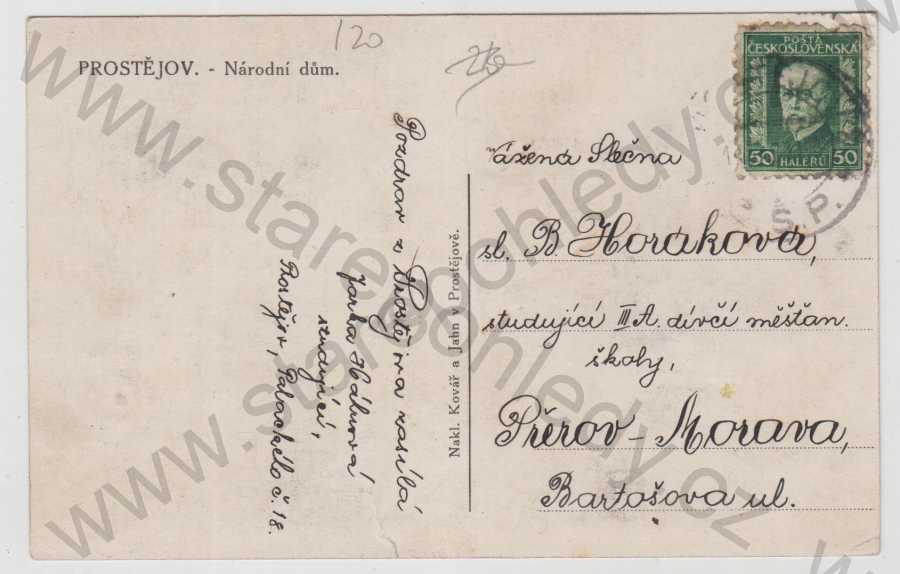 120
PROSTĚJOV. - Národní dům.
POŠTA
ČESKOSLOVENSKÁ
50 HALÉŘŮ 50
Š. P.
Pozdrav z Prostějova zasílá
Jarka
studující,
Prostějov, Palackého č. 18.
Nakl. Kovář a Jahn v Prostějově.
Vážená Slečna
sl. B. Horáková,
studující III A. dívčí měšťan.
školy,
Přerov - Morava,
Bartošova ul.
www.starepohledy.cz
www.starepohledy.cz